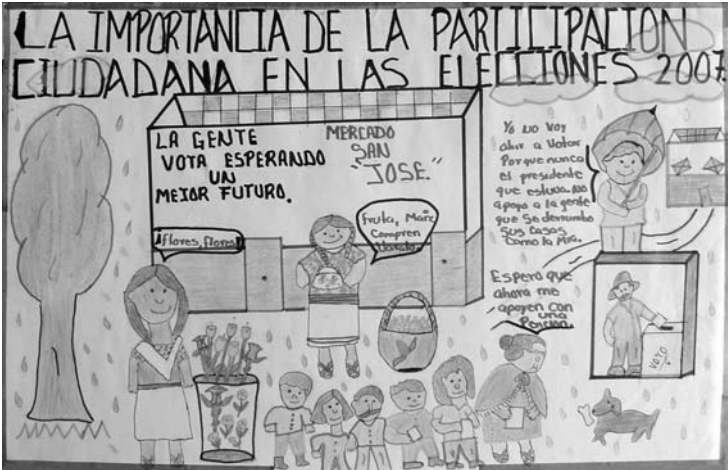 LA IMPORTANCIA DE LA PARTICIPACION
CIUDADANA EN LAS ELECCIONES 2007
LA GENTE
VOTA ESPERANDO
UN
MEJOR FUTURO.
MERCADO
SAN
"JOSE."
¡flores, flores!
Fruta, Maiz
Compren
Yo no voy
ahir a Votar
Porque nunca
el presidente
que estuvo no
apoyo a la gente
que Se derrumbo
Sus Casas
Como la Mia.
Espero que
ahora me
apoyen con
una
VOTO